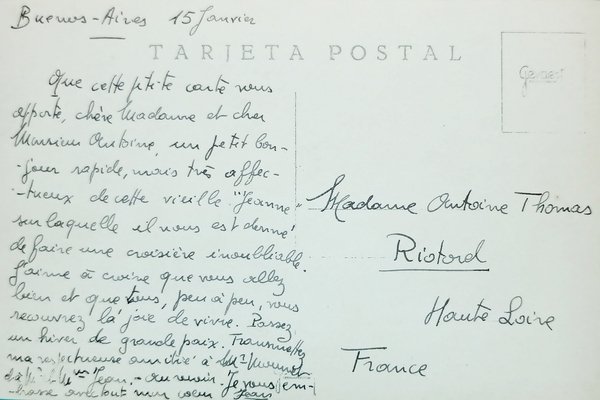 Buenos-Aires 15 Janvier
TARJETA POSTAL
Gevaert
Que cette petite carte vous
apporte, chère Madame et cher
Monsieur Antoine, un petit bon-
-jour rapide, mais très affec-
-tueux de cette vieille "Jeanne"
sur laquelle il nous est donné
de faire une croisière inoubliable.
J'aime à croire que vous allez
bien et que tous, peu à peu, vous
recouvrez la joie de vivre. Passez
un hiver de grande paix. Transmettez
ma respectueuse amitié à Mr
Jean. - au revoir. Je vous em-
-brasse avec tout mon cœur Jean
Madame Antoine Thomas
Riotord
Haute Loire
France